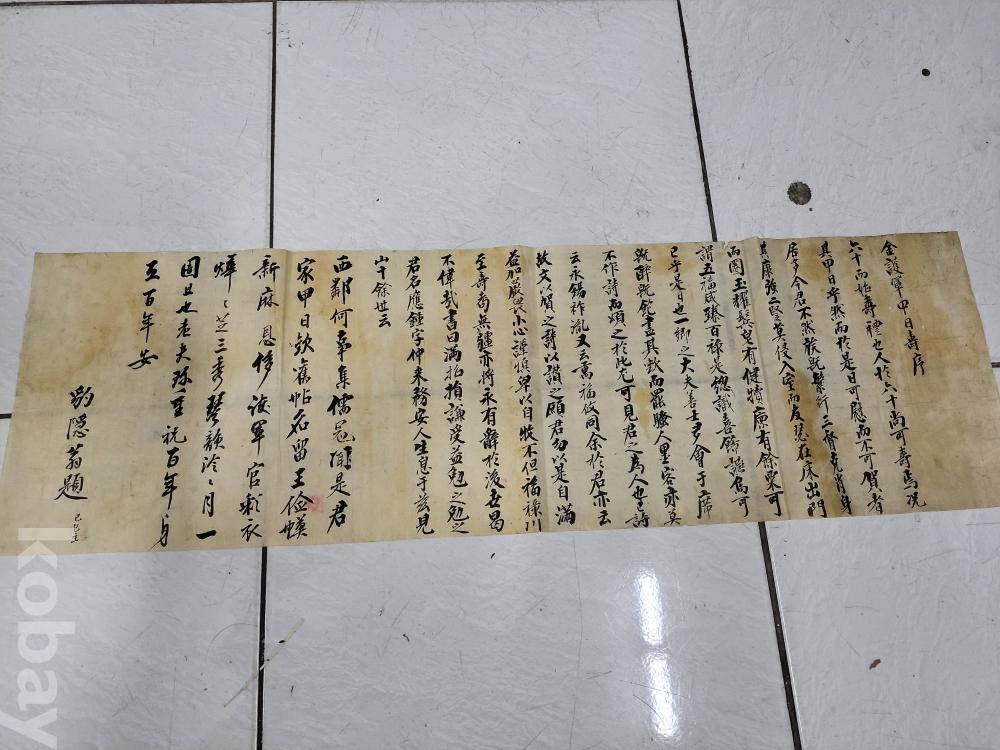 金護軍甲日壽序
六十而始壽禮也人於六十尚可壽焉況
其甲日乎然而於是日可慰而不可賀者
居多今君不然狀既繁行二督克肖身
其康強二竪莫侵入室而友瑟在床出門
而圈玉耀鬂皃有健犢廩有餘粟可
謂五福咸臻百祿是總識喜飾謹烏可
已乎是日也一鄉之大夫善士多會于席
既醉既飽盡其歡而罷騷人墨客亦莫
不作詩而頌之於此尤可見君之爲人也詩
云永錫祚胤又云萬福攸同余於君亦云
故文以賀之詩以讃之願君勿以是自滿
益加嚴畏小心謹愼卑以自牧不但福祿川
至壽考無疆亦將永有辭於後世曷
不偉哉書曰滿招損謙受益勉之勉之
君名應鍾字仲來務安人生息于玆見
山十餘世云
西鄰何事集儒冠聞是君
家甲日歡舊帖名留王儉帙
新麻恩侈護軍官彩衣
煒〻芝三秀琴韻泠〻月一
團且也老夫殊至祝百年身
五百年安
豹隱翁題
己巳
kobay